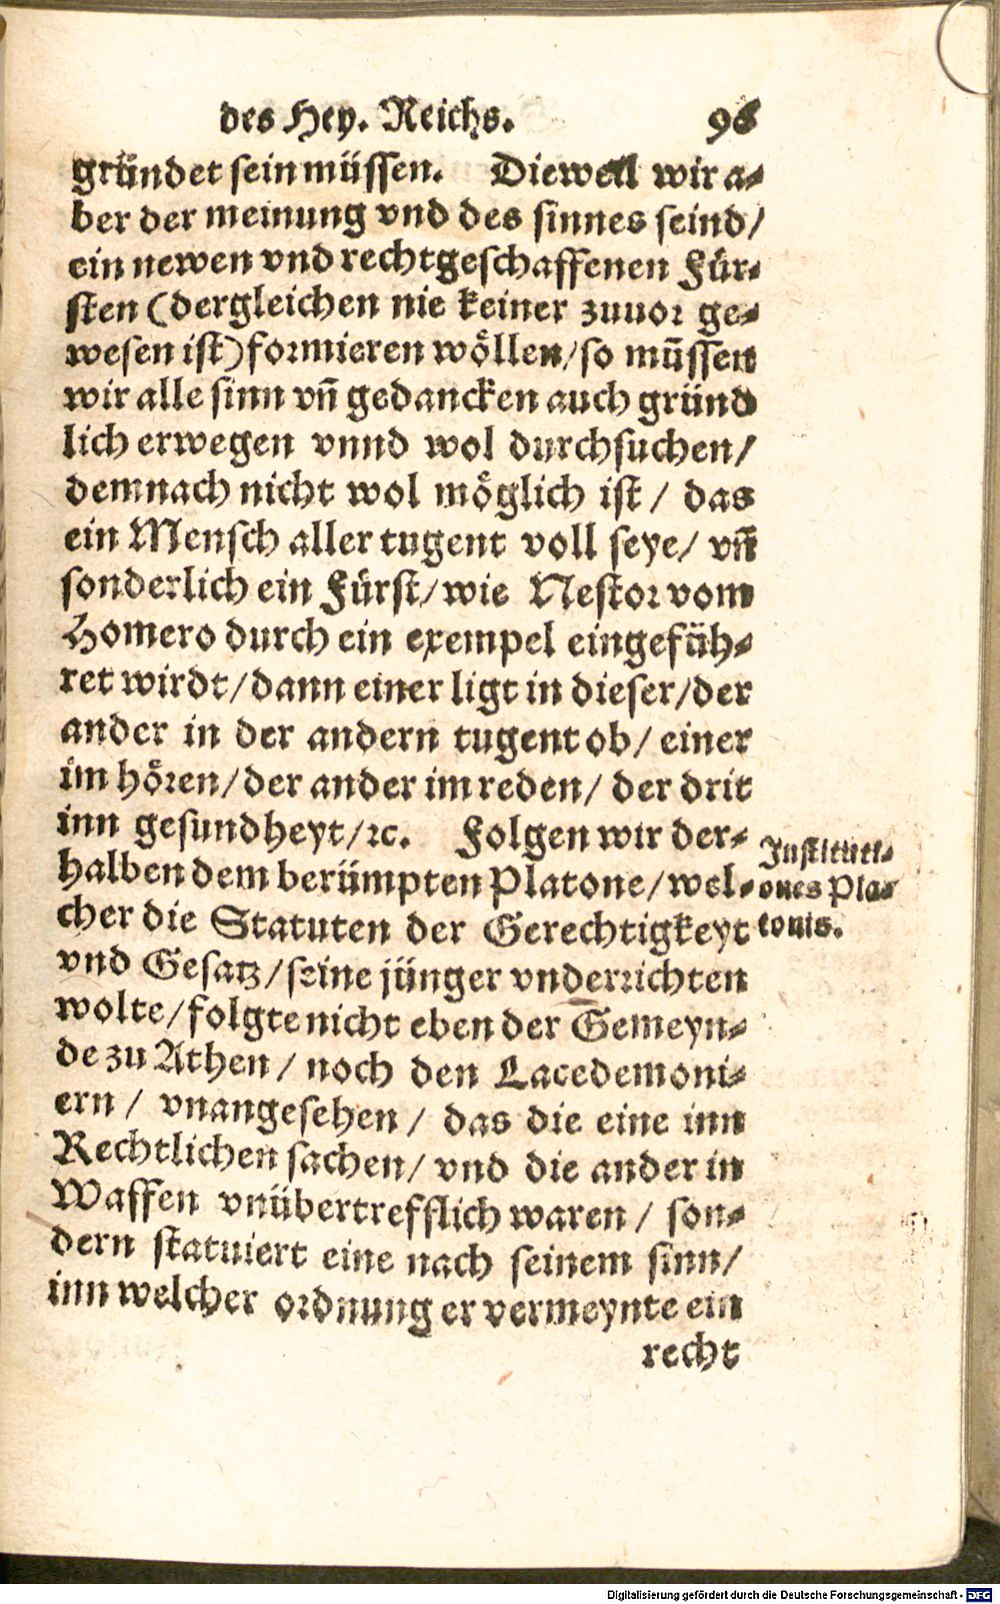 des Hey. Reichs. 96
gründet sein müssen. Diewell wir a-
ber der meinung vnd des sinnes seind/
ein newen vnd rechtgeschaffenen Für-
sten (dergleichen nie keiner zuuor ge-
wesen ist) formieren wöllen/so mūssen
wir alle sinn vñ gedancken auch gründ
lich erwegen vnnd wol durchsuchen/
demnach nicht wol möglich ist / das
ein Mensch aller tugent voll seye/ vñ
sonderlich ein Fürst/wie Nestor vom
Homero durch ein exempel eingefüh-
ret wirdt/dann einer ligt in dieser/der
ander in der andern tugent ob/ einer
im hören/der ander im reden/ der drit
inn gesundheyt/ꝛc. Folgen wir der-
halben dem berümpten Platone/wel-
cher die Statuten der Gerechtigkeyt
vnd Gesatz/seine jünger vnderrichten
wolte/folgte nicht eben der Gemeyn-
de zu Athen / noch den Lacedemoni-
ern / vnangesehen / das die eine inn
Rechtlichen sachen/ vnd die ander in
Waffen vnübertrefflich waren / son-
dern statuiert eine nach seinem sinn/
inn welcher ordnung er vermeynte ein
recht
Instituti-
ones Pla-
tonis.
Digitalisierung gefördert durch die Deutsche Forschungsgemeinschaft - DFG